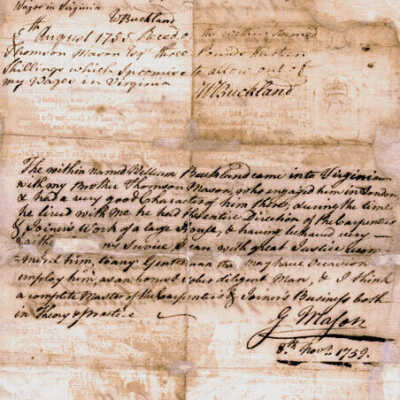 Wages in Virginia
WBuckland
5th August 1755 Recd of the within named
Thomson Mason Esqr three Pounds
Shillings which I promise to allow out of
my Wages in Virginia
WBuckland
The within named William Buckland came into Virginia
with my Brother Thomson Mason, who engaged him in London,
& had a very good Character of him there; during the time
he lived with me he had the entire Direction of the Carpenters
& Joiners Work of a large House, & having behaved very
in my Service, I can with great Justice
him to any Gentleman that may have Occasion to
employ him, as an honest sober diligent Man, & I think
a complete Master of the Carpenter's & Joiner's Business both
in Theory & practice
G Mason
8th Novr. 1759.